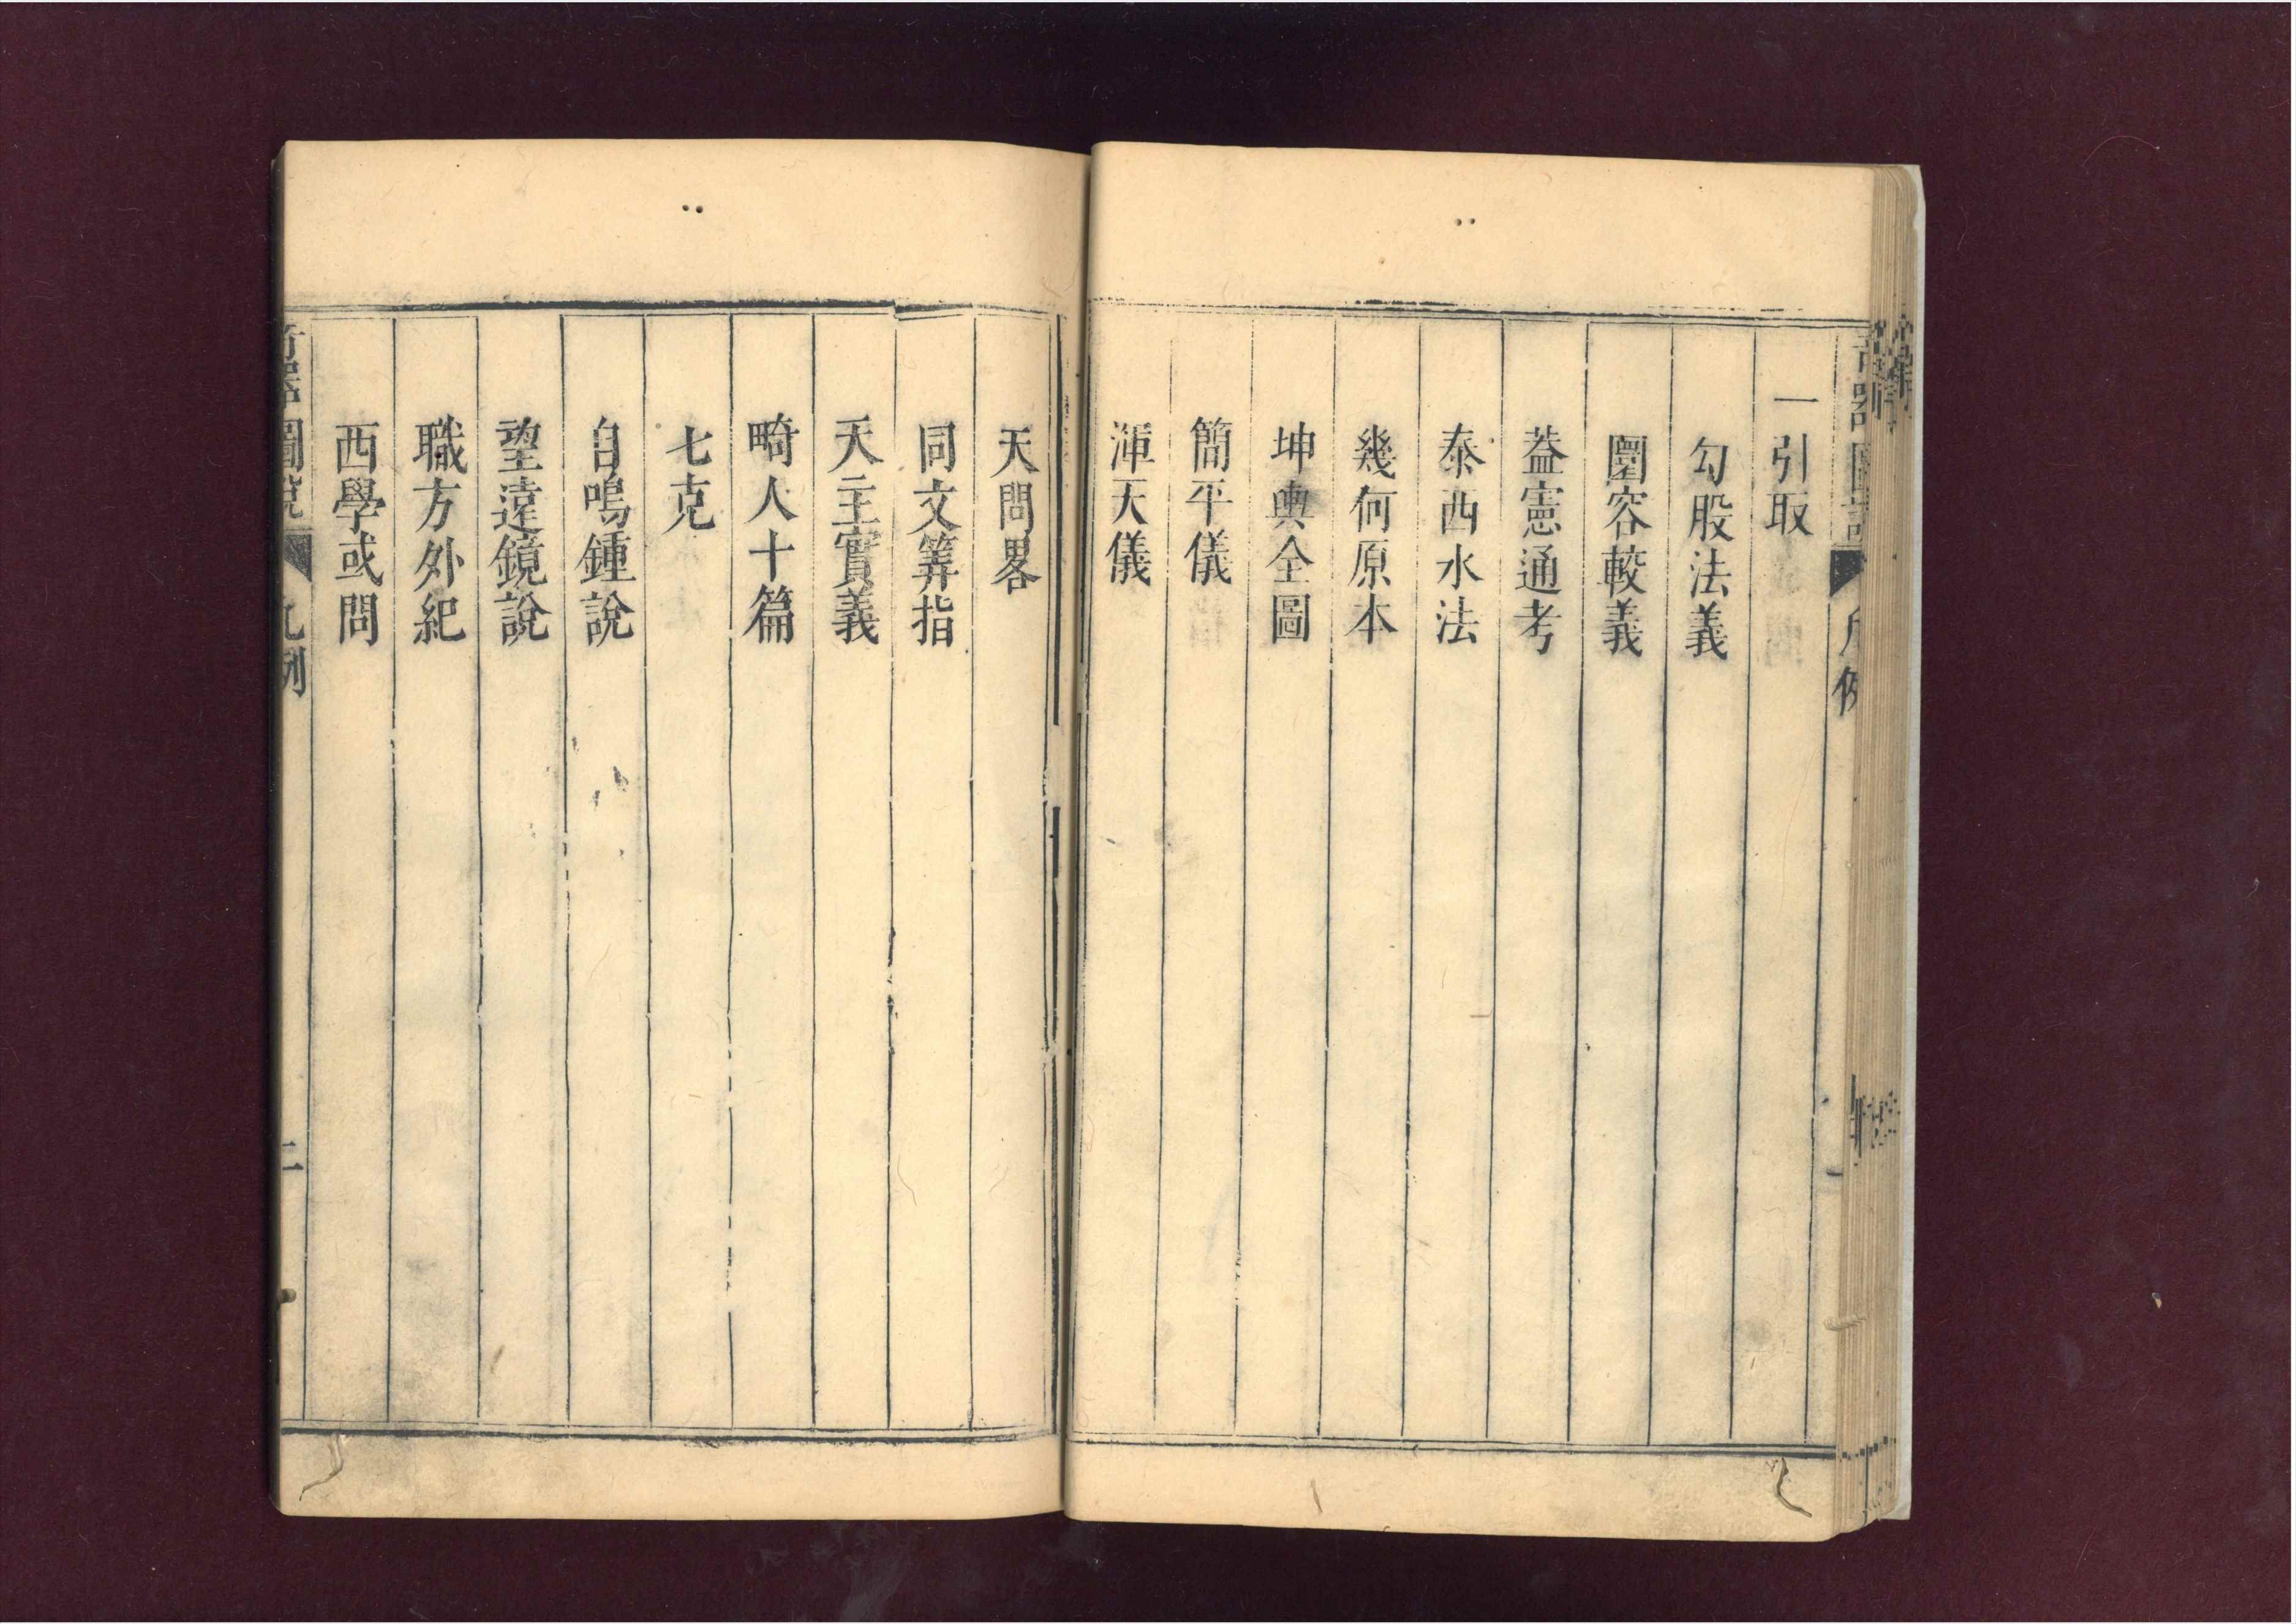 一引取
勾股法義
圜容較義
葢憲通考
泰西水法
幾何原本
坤輿全圖
簡平儀
渾天儀
天問畧
同文筭指
天主實義
畸人十篇
七克
自鳴鍾說
望遠鏡說
職方外紀
西學或問
奇器圖說 凡例 二